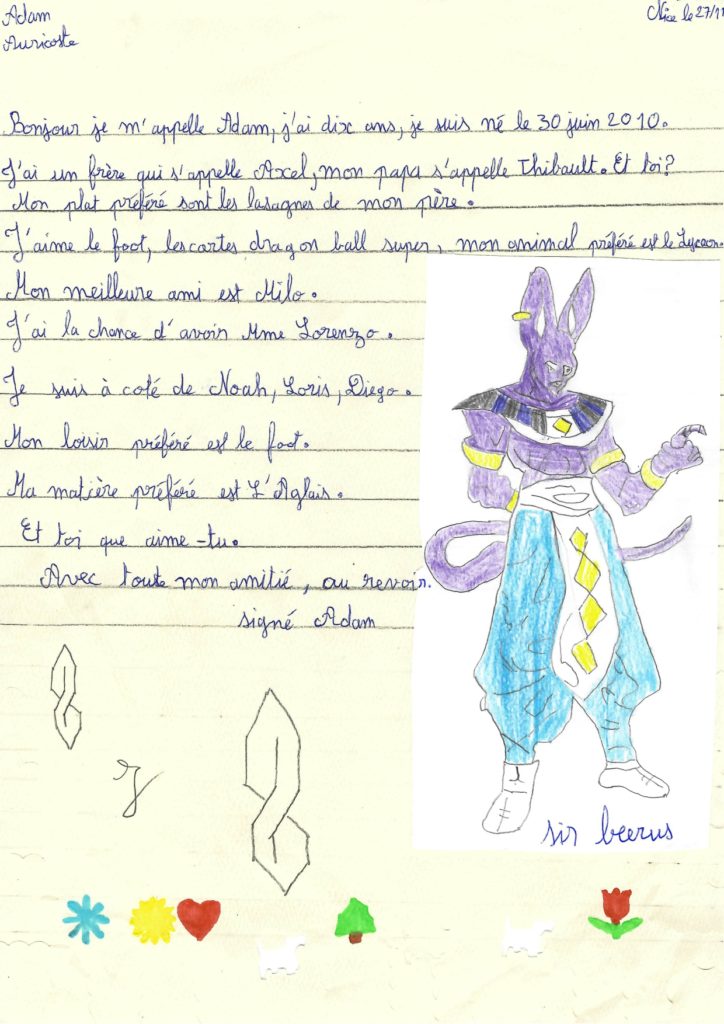 Adam
Auricoste
Nice le 27/11
Bonjour je m'appelle Adam, j'ai dix ans, je suis né le 30 juin 2010.
J'ai un frère qui s'appelle Axel, mon papa s'appelle Thibault. Et toi?
Mon plat préféré sont les lasagnes de mon père.
J'aime le foot, les cartes dragon ball super, mon animal préféré est le Lycaon.
Mon meilleure ami est Milo.
J'ai la chance d'avoir Mme Lorenzo.
Je suis à coté de Noah, Loris, Diego.
Mon loisir préféré est le foot.
Ma matière préféré est L'Aglais.
Et toi que aime-tu.
Avec toute mon amitié, au revoir.
signé Adam
sir beerus